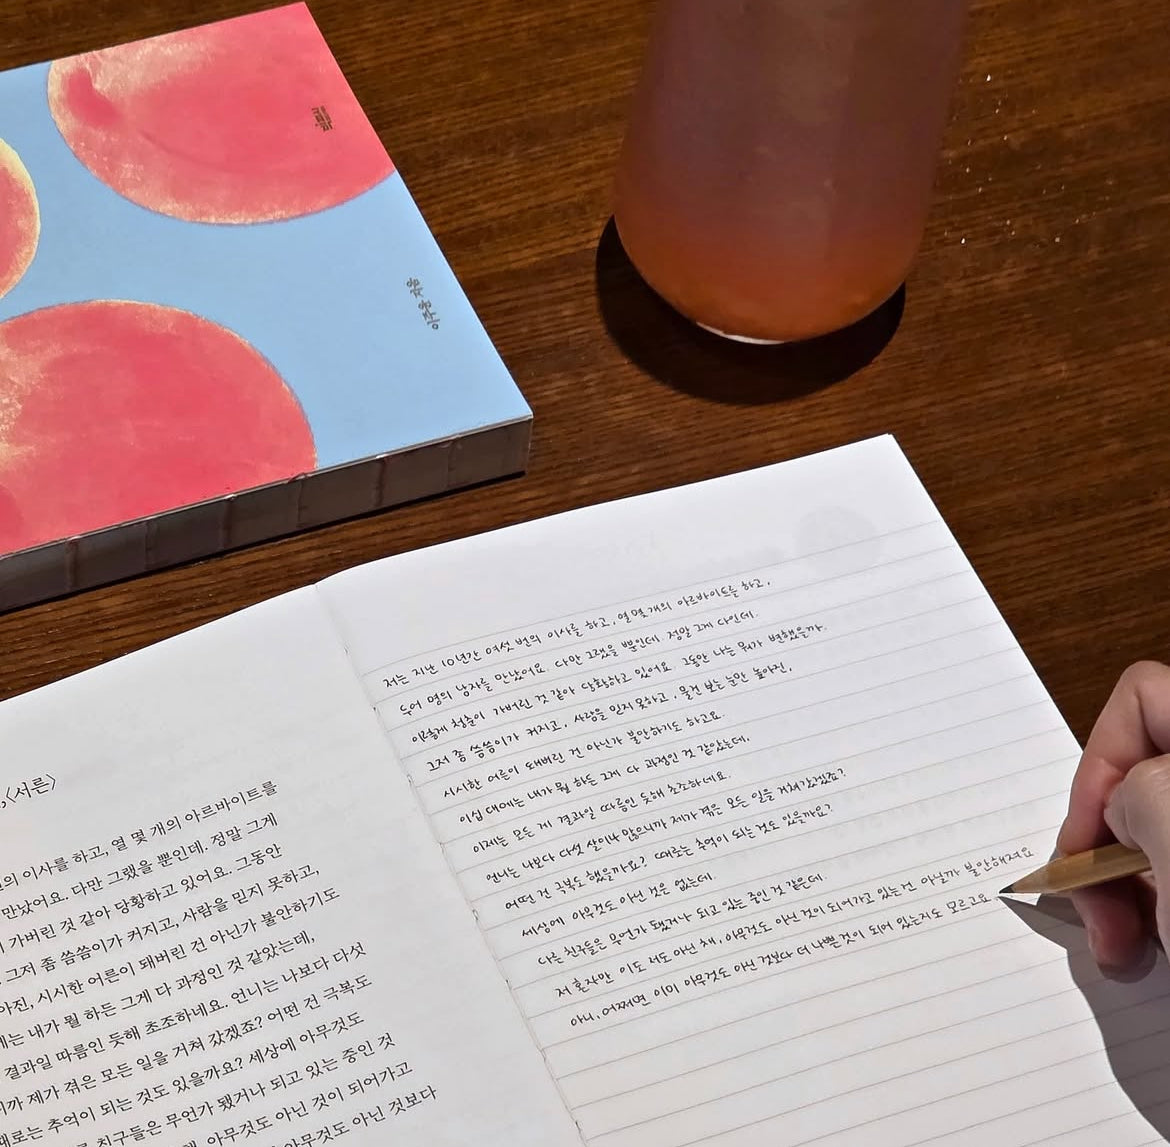 이주윤 지음
,〈서른〉
의 이사를 하고, 열 몇 개의 아르바이트를
만났어요. 다만 그랬을 뿐인데. 정말 그게
가버린 것 같아 당황하고 있어요. 그동안
. 그저 좀 씀씀이가 커지고, 사람을 믿지 못하고,
아진, 시시한 어른이 돼버린 건 아닌가 불안하기도
에는 내가 뭘 하든 그게 다 과정인 것 같았는데,
결과일 따름인 듯해 초조하네요. 언니는 나보다 다섯
니까 제가 겪은 모든 일을 거쳐 갔겠죠? 어떤 건 극복도
때로는 추억이 되는 것도 있을까요? 세상에 아무것도
친구들은 무언가 됐거나 되고 있는 중인 것
아무것도 아닌 것이 되어가고
아무것도 아닌 것보다
저는 지난 10년간 여섯 번의 이사를 하고, 열 몇 개의 아르바이트를 하고,
두어 명의 남자를 만났어요. 다만 그랬을 뿐인데 정말 그게 다인데.
이렇게 청춘이 가버린 것 같아 당황하고 있어요. 그동안 나는 뭐가 변했을까.
그저 좀 씀씀이가 커지고, 사람을 믿지 못하고, 물건 보는 눈만 높아진,
시시한 어른이 돼버린 건 아닌가 불안하기도 하고요.
이십 대에는 내가 뭘 하든 그게 다 과정인 것 같았는데,
이제는 모든 게 결과일 따름인 듯해 초조하네요.
언니는 나보다 다섯 살이나 많으니까 제가 겪은 모든 일을 거쳐 갔겠죠?
어떤 건 극복도 했을까요? 때로는 추억이 되는 것도 있을까요?
세상에 아무것도 아닌 것은 없는데.
다른 친구들은 무언가 됐거나 되고 있는 중인 것 같은데.
저 혼자만 이도 저도 아닌 채, 아무것도 아닌 것이 되어가고 있는 건 아닐까 불안해져요
아니, 어쩌면 이미 아무것도 아닌 것보다 더 나쁜 것이 되어 있는지도 모르고요.